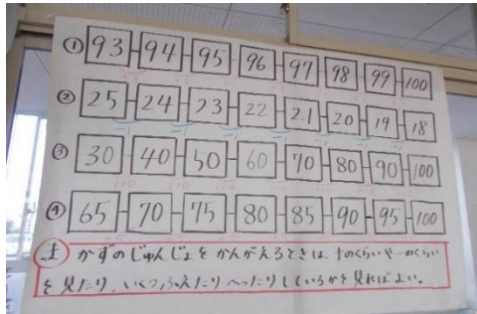 ① 93 94 95 96 97 98 99 100
② 25 24 23 22 21 20 19 18
③ 30 40 50 60 70 80 90 100
④ 65 70 75 80 85 90 95 100
ま かずのじゅんじょをかんがえるときは、十のくらいや一のくらい
を見たり、いくつふえたりへったりしているかを見ればよい。